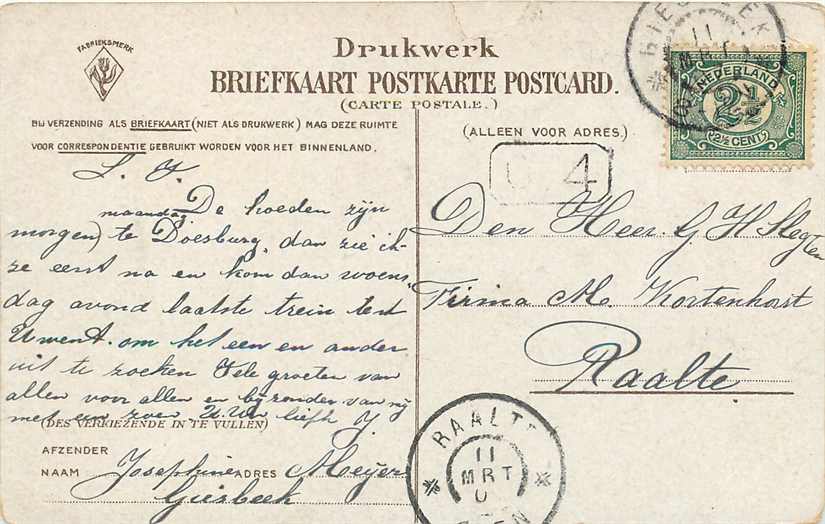 FABRIEKSMERK
Drukwerk
BRIEFKAART POSTKARTE POSTCARD.
(CARTE POSTALE.)
BIJ VERZENDING ALS BRIEFKAART (NIET ALS DRUKWERK) MAG DEZE RUIMTE
VOOR CORRESPONDENTIE GEBRUIKT WORDEN VOOR HET BINNENLAND.
(ALLEEN VOOR ADRES.)
11
MRT
NEDERLAND
2½
2½ CENT
4
maandag De hoeden zijn
morgen) te Doesburg, dan zie ik
ze eerst na en kom dan woens
dag avond laatste trein
om het een en ander
uit te zoeken Vele groeten van
allen voor allen en bijzonder van mij
met een zoen
(DES VERKIEZENDE IN TE VULLEN)
AFZENDER
NAAM Josephine ADRES Meijer
Giesbeek
Den Heer G H Slegten
Firma M. Kortenhorst
Raalte
RAALTE
11
MRT